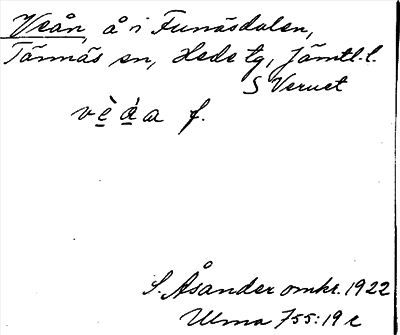 Veån, å i Funäsdalen,
Tännäs sn, Hede tg, Jämtl. l.
S Veruet
vè̱ á̱ a f.
S. Åsander omkr. 1922
Ulma 755:19 c